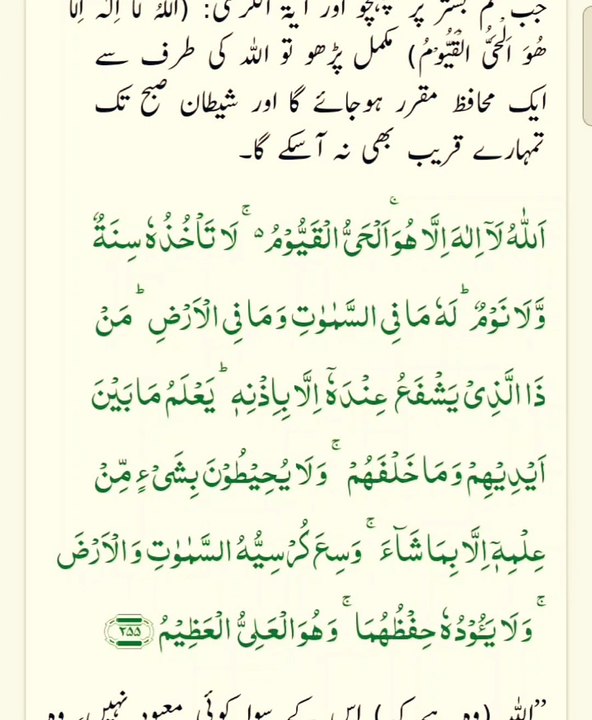 جب تم بستر پر پہنچو اور آیۃ الکرسی: (اَللّٰہُ لَا اِلٰہَ اِلَّا
ھُوَ الْحَیُّ الْقَیُّوْمُ) مکمل پڑھو تو اللہ کی طرف سے
ایک محافظ مقرر ہوجائے گا اور شیطان صبح تک
تمہارے قریب بھی نہ آسکے گا۔
اَللّٰهُ لَاۤ اِلٰهَ اِلَّا هُوَۚ اَلْحَیُّ الْقَیُّوْمُ ۵ۚ لَا تَاْخُذُهٗ سِنَةٌ
وَّ لَا نَوْمٌؕ لَهٗ مَا فِی السَّمٰوٰتِ وَ مَا فِی الْاَرْضِؕ مَنْ
ذَا الَّذِیْ یَشْفَعُ عِنْدَهٗۤ اِلَّا بِاِذْنِهٖؕ یَعْلَمُ مَا بَیْنَ
اَیْدِیْهِمْ وَ مَا خَلْفَهُمْۚ وَ لَا یُحِیْطُوْنَ بِشَیْءٍ مِّنْ
عِلْمِهٖۤ اِلَّا بِمَا شَآءَۚ وَسِعَ كُرْسِیُّهُ السَّمٰوٰتِ وَ الْاَرْضَ
ۚ وَ لَا یَـُٔوْدُهٗ حِفْظُهُمَاۚ وَ هُوَ الْعَلِیُّ الْعَظِیْمُ ۲۵۵
”اللہ (وہ ہے کہ) اس کے سوا کوئی معبود نہیں، وہ